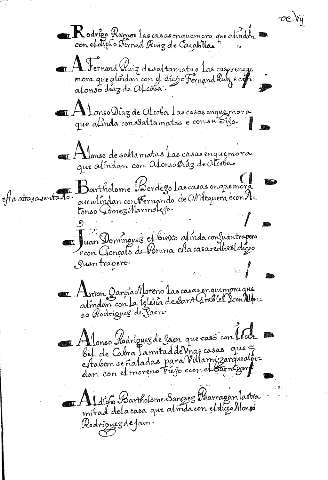 Rodrigo Ramos las casas en que mora que alindan
con el dicho Fernad Ruiz de
A Fernand Ruiz de saltamatas las casas en que
mora que alindan con el dicho Fernand Ruiz e con
alonso diaz de Alcoba
Alonso Diaz de Alcoba las casas en que mora
que alinda con saltamatas e con su hijo
Alonso de saltamatas las casas en que mora
que alindan con Alonso Diaz de Alcoba
esta atras sentado
Bartholome Berdejo las casas en que mora
que alindan con Fernando de Antequera e con A
lonso Gomez Marmolejo
Juan Dominguez el alinda con Juan trapero
e con Gonçalo de Porcuna e la casa del dicho
Juan trapero
Anton Garcia Moreno las casas en que mora que
alindan con la iglesia de sant Grabiel e con Alon
so Rodrigues de Jaen
Alonso Rodrigues de Jaen que caso con
bel de Cabra la mitad de unas casas que
estaban señaladas para Villamizar que alin
dan con el moreno viejo e con el
Al dicho Bartholome Sanches Abarragan la otra
mitad de la casa que alinda con el dicho Alonso
Rodrigues de Jaen